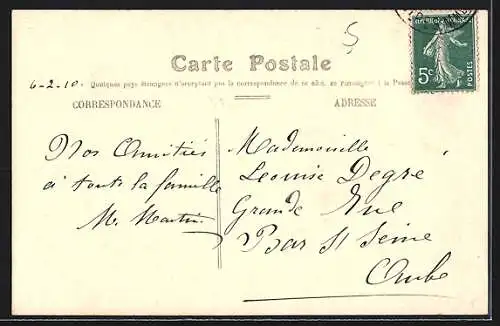 5
Carte Postale
6-2-10
Quelques pays étrangers n'acceptent pas la correspondance de ce côté, se
CORRESPONDANCE
ADRESSE
5c
POSTES
Nos Amitiés
à toute la famille
M. Martin
Mademoiselle
Leonise Degré
Grande Rue
Bar St Seine
Aube